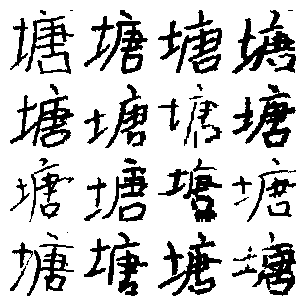 塘塘塘塘
塘塘塘塘
塘塘塘塘
塘塘塘塘